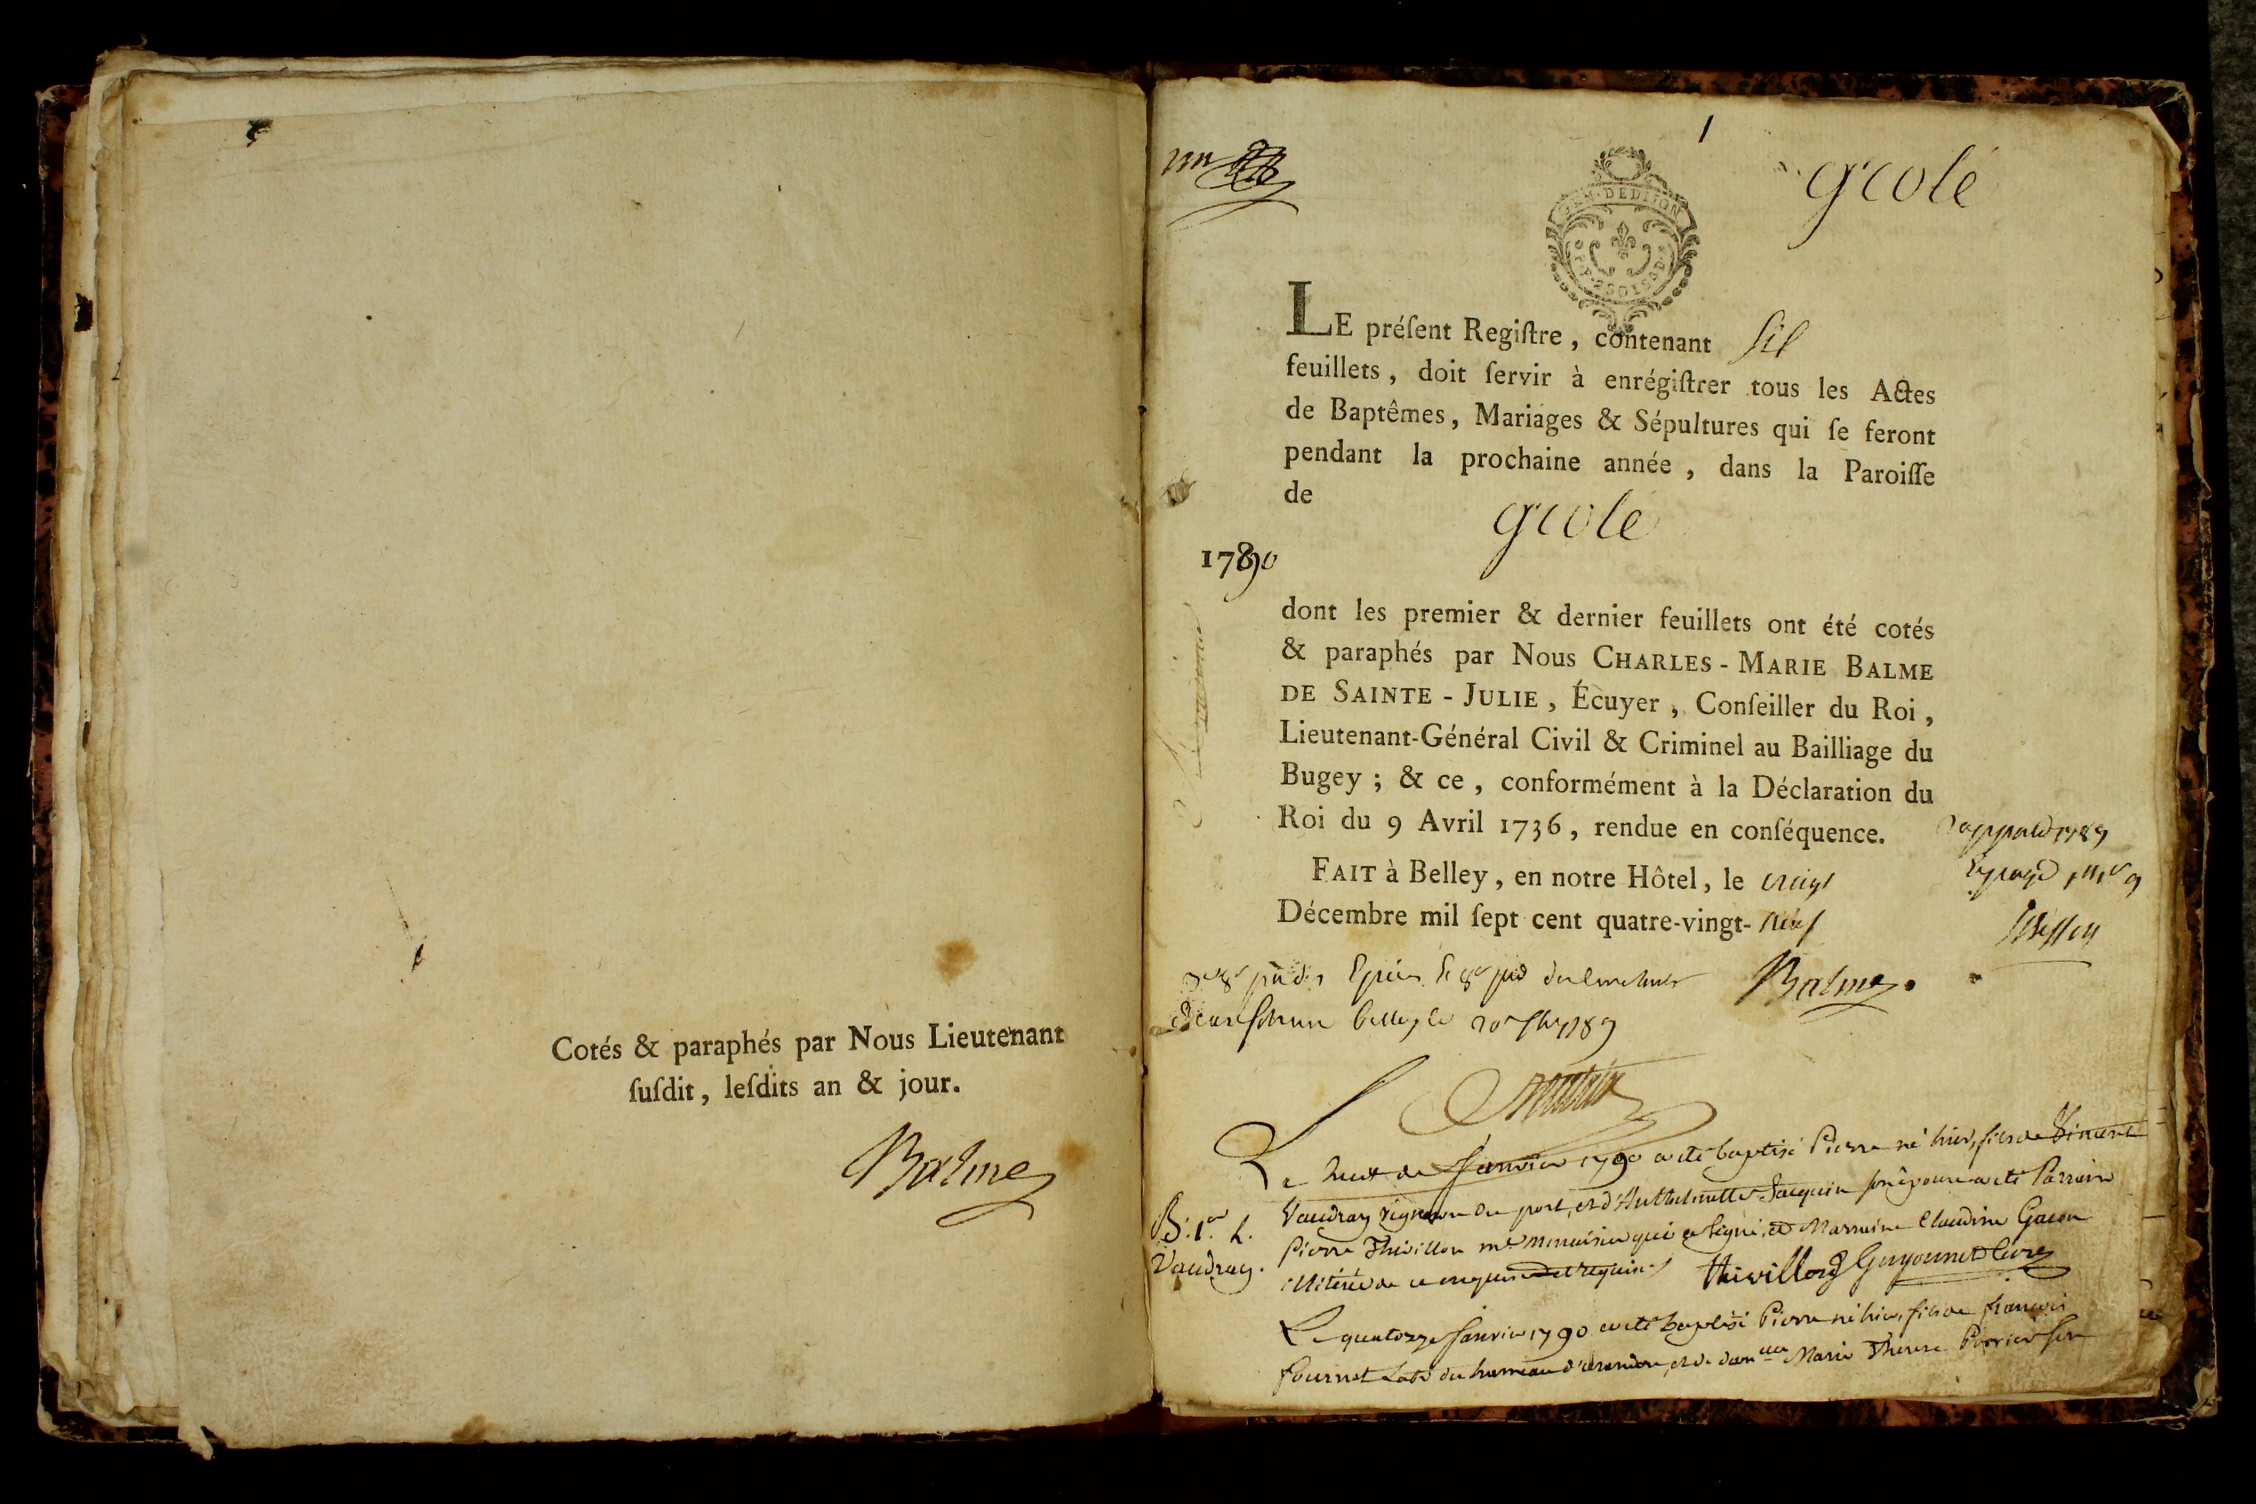 Cotés & paraphés par Nous Lieutenant
ſuſdit, leſdits an & jour.
Balme
1
un
GEN. DE DIJON
grolé
LE préſent Regiſtre, contenant ſix
feuillets, doit ſervir à enrégiſtrer tous les Actes
de Baptêmes, Mariages & Sépultures qui ſe feront
pendant la prochaine année, dans la Paroiſſe
de
grolé
1790
dont les premier & dernier feuillets ont été cotés
& paraphés par Nous CHARLES-MARIE BALME
DE SAINTE-JULIE, Écuyer, Conſeiller du Roi,
Lieutenant-Général Civil & Criminel au Bailliage du
Bugey; & ce, conformément à la Déclaration du
Roi du 9 Avril 1736, rendue en conſéquence.
FAIT à Belley, en notre Hôtel, le vingt
Décembre mil ſept cent quatre-vingt-neuf
Balme
belley le 1789
Le huit de Janvier 1790 a eté baptisé Pierre né hier, fils de Vincent
Vaudray vigneron du port, et d'Anthelmette Jacquin son épouse a eté Parrain
Pierre Thivillon me menuisier qui a signé, et Marraine Claudine Gacon
illitérée de ce enquise et requise. thivillon Guyonnet Curé
B. 1er L.
Vaudray.
Le quatorze Janvier 1790 a eté baptisé Pierre né hier, fils de françois
fournet Labr du hameau d' et de dam.lle Marie Therese son